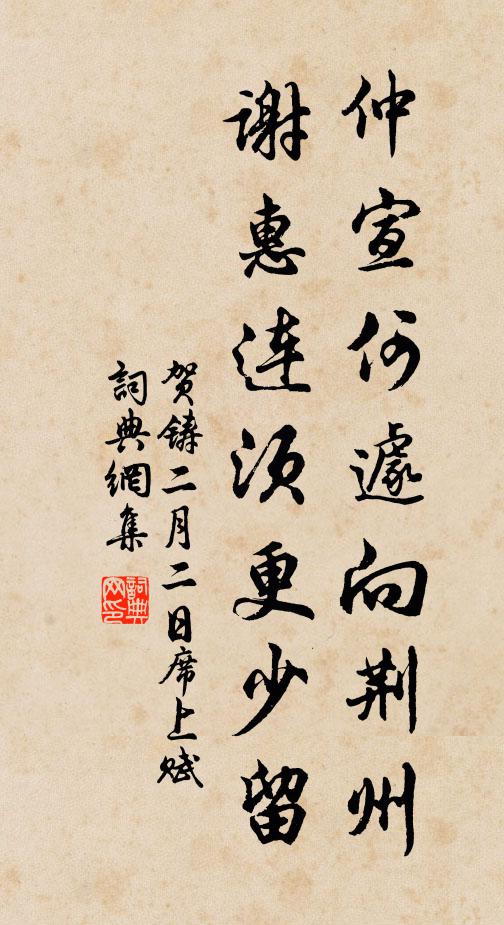 仲宣何遽向荆州
谢惠连须更少留
贺铸二月二日席上赋
詞典網集
詞典网印